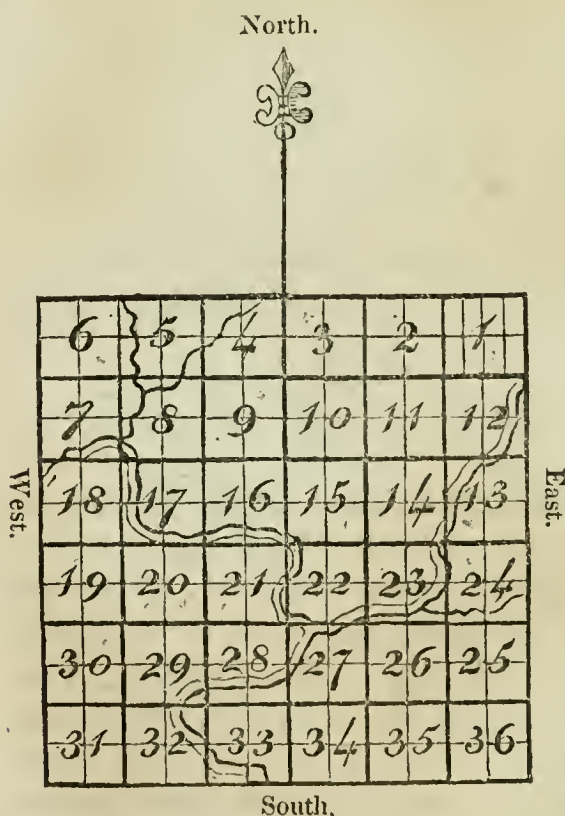 North.
6 5 4 3 2 1
7 8 9 10 11 12
18 17 16 15 14 13
West.
East.
19 20 21 22 23 24
30 29 28 27 26 25
31 32 33 34 35 36
South.